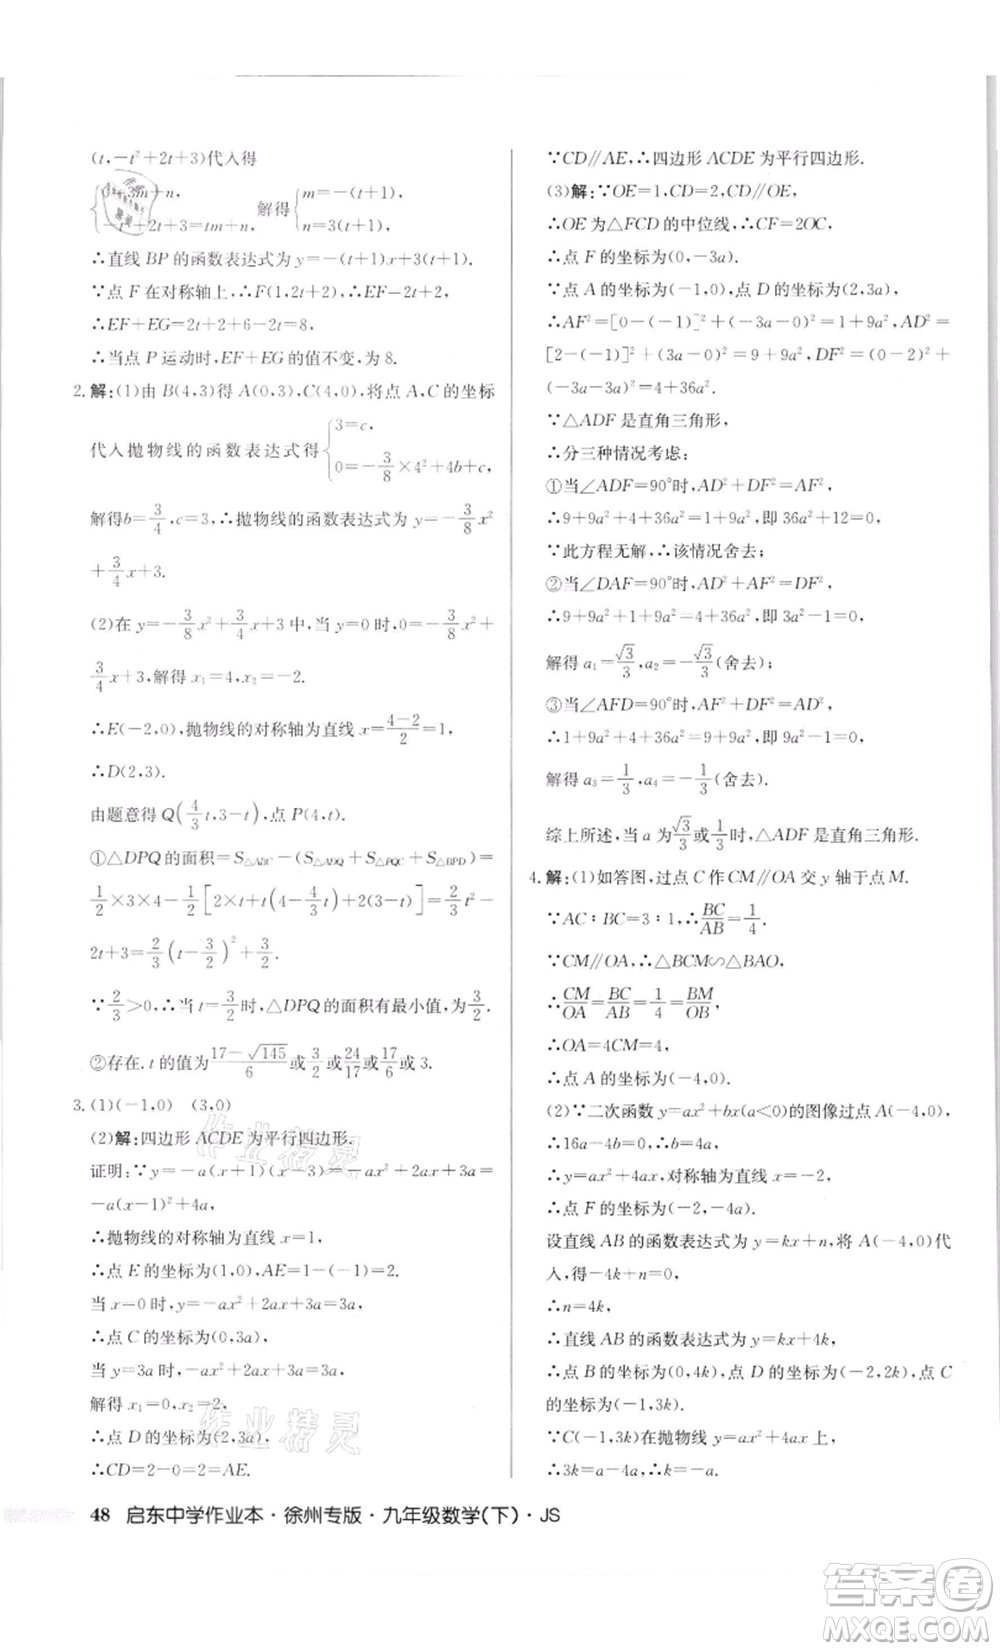 (t,-t²+2t+3)代入得
{0=3m+n, -t²+2t+3=m+n, 解得{m=-(t+1), n=3(t+1).
∴直线 BP 的函数表达式为 y=-(t+1)x+3(t+1).
∵点 F 在对称轴上,∴F(1,2t+2),∴EF=2t+2,
∴EF+EG=2t+2+6-2t=8,
∴当点 P 运动时,EF+EG 的值不变,为 8.
2.解:(1)由 B(4,3)得 A(0,3),C(4,0),将点 A,C 的坐标
代入抛物线的函数表达式得{3=c, 0=-3/8×4²+4b+c,
解得b=3/4,c=3,∴抛物线的函数表达式为 y=-3/8x²
+3/4x+3.
(2)在 y=-3/8x²+3/4x+3中,当 y=0时,0=-3/8x²+
3/4x+3,解得 x₁=4,x₂=-2.
∴E(-2,0),抛物线的对称轴为直线 x=(4-2)/2=1,
∴D(2,3).
由题意得 Q(4/3t,3-t),点 P(4,t).
①△DPQ 的面积=S△ABC-(S△ADQ+S△PQC+S△BPD)=
1/2×3×4-1/2[2×t+2t+(4-4/3t)×t]=2/3t²-
2t+3=2/3(t-3/2)²+3/2.
∵2/3>0,∴当 t=3/2时,△DPQ 的面积有最小值,为3/2.
②存在.t 的值为(17-√145)/6或3/2或24/17或17/6或 3.
3.(1)(-1,0) (3,0)
(2)解:四边形 ACDE 为平行四边形.
证明:∵y=-a(x+1)(x-3)=-ax²+2ax+3a=
-a(x-1)²+4a,
∴抛物线的对称轴为直线 x=1,
∴点 E 的坐标为(1,0),AE=1-(-1)=2.
当 x=0时,y=-ax²+2ax+3a=3a,
∴点 C 的坐标为(0,3a).
当 y=3a 时,-ax²+2ax+3a=3a,
解得 x₁=0,x₂=2,
∴点 D 的坐标为(2,3a),
∴CD=2-0=2=AE.
∵CD∥AE,∴四边形 ACDE 为平行四边形.
(3)解:∵OE=1,CD=2,OE∥CD,
∴OE 为△FCD 的中位线,∴CF=2OC,
∴点 F 的坐标为(0,-3a).
∵点 A 的坐标为(-1,0),点 D 的坐标为(2,3a),
∴AF²=[0-(-1)]²+(-3a-0)²=1+9a²,AD²=
[2-(-1)]²+(3a-0)²=9+9a²,DF²=(0-2)²+
(-3a-3a)²=4+36a².
∵△ADF 是直角三角形,
∴分三种情况考虑:
①当∠ADF=90°时,AD²+DF²=AF²,
∴9+9a²+4+36a²=1+9a²,即 36a²+12=0,
∵此方程无解,∴该情况舍去;
②当∠DAF=90°时,AD²+AF²=DF²,
∴9+9a²+1+9a²=4+36a²,即 3a²-1=0,
解得 a₁=√3/3,a₂=-√3/3(舍去);
③当∠AFD=90°时,AF²+DF²=AD²,
∴1+9a²+4+36a²=9+9a²,即 9a²-1=0,
解得 a₃=1/3,a₄=-1/3(舍去).
综上所述,当 a 为√3/3或1/3时,△ADF 是直角三角形.
4.解:(1)如答图,过点 C 作 CM∥OA 交 y 轴于点 M.
∵AC∶BC=3∶1,∴BC/AB=1/4.
∵CM∥OA,∴△BCM∽△BAO,
∴CM/OA=BC/AB=1/4=BM/OB,
∴OA=4CM=4,
∴点 A 的坐标为(-4,0).
(2)∵二次函数 y=ax²+bx(a<0)的图像过点 A(-4,0),
∴16a-4b=0,∴b=4a,
∴y=ax²+4ax,对称轴为直线 x=-2,
∴点 F 的坐标为(-2,-4a).
设直线 AB 的函数表达式为 y=kx+n,将 A(-4,0)代
入,得-4k+n=0,
∴n=4k,
∴直线 AB 的函数表达式为 y=kx+4k,
∴点 B 的坐标为(0,4k),点 D 的坐标为(-2,2k),点 C
的坐标为(-1,3k).
∵C(-1,3k)在抛物线 y=ax²+4ax 上,
∴3k=a-4a,∴k=-a,
48 启东中学作业本·徐州专版·九年级数学(下)·JS
作业精灵
作业精灵
答案圈
MXQE.COM